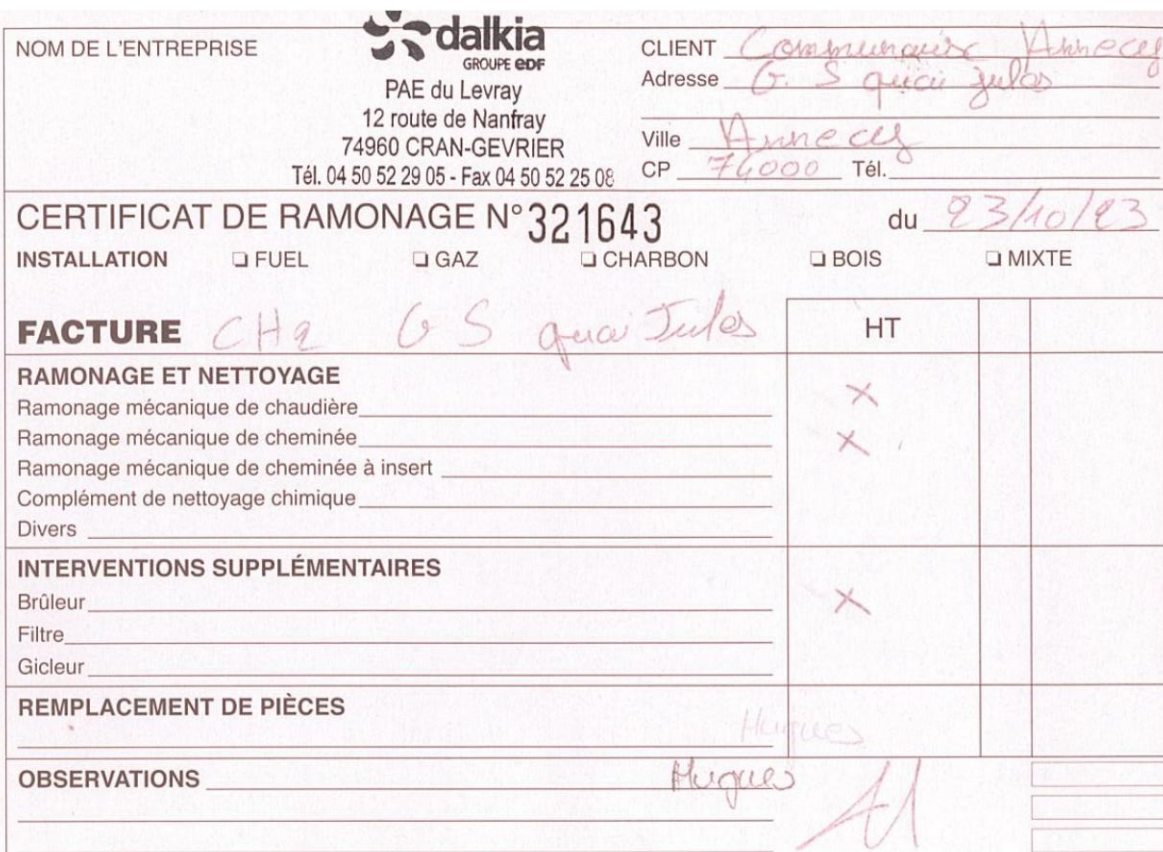 NOM DE L'ENTREPRISE
dalkia
GROUPE EDF
PAE du Levray
12 route de Nanfray
74960 CRAN-GEVRIER
Tél. 04 50 52 29 05 - Fax 04 50 52 25 08
CLIENT Annecy
Adresse G. S quai Jules
Ville Annecy
CP 74000 Tél.
CERTIFICAT DE RAMONAGE N° 321643 du 23/10/23
INSTALLATION ❑ FUEL ❑ GAZ ❑ CHARBON ❑ BOIS ❑ MIXTE
FACTURE CH2 G S quai Jules HT
RAMONAGE ET NETTOYAGE
Ramonage mécanique de chaudière X
Ramonage mécanique de cheminée X
Ramonage mécanique de cheminée à insert
Complément de nettoyage chimique
Divers
INTERVENTIONS SUPPLÉMENTAIRES
Brûleur X
Filtre
Gicleur
REMPLACEMENT DE PIÈCES
Hugues
OBSERVATIONS Hugues